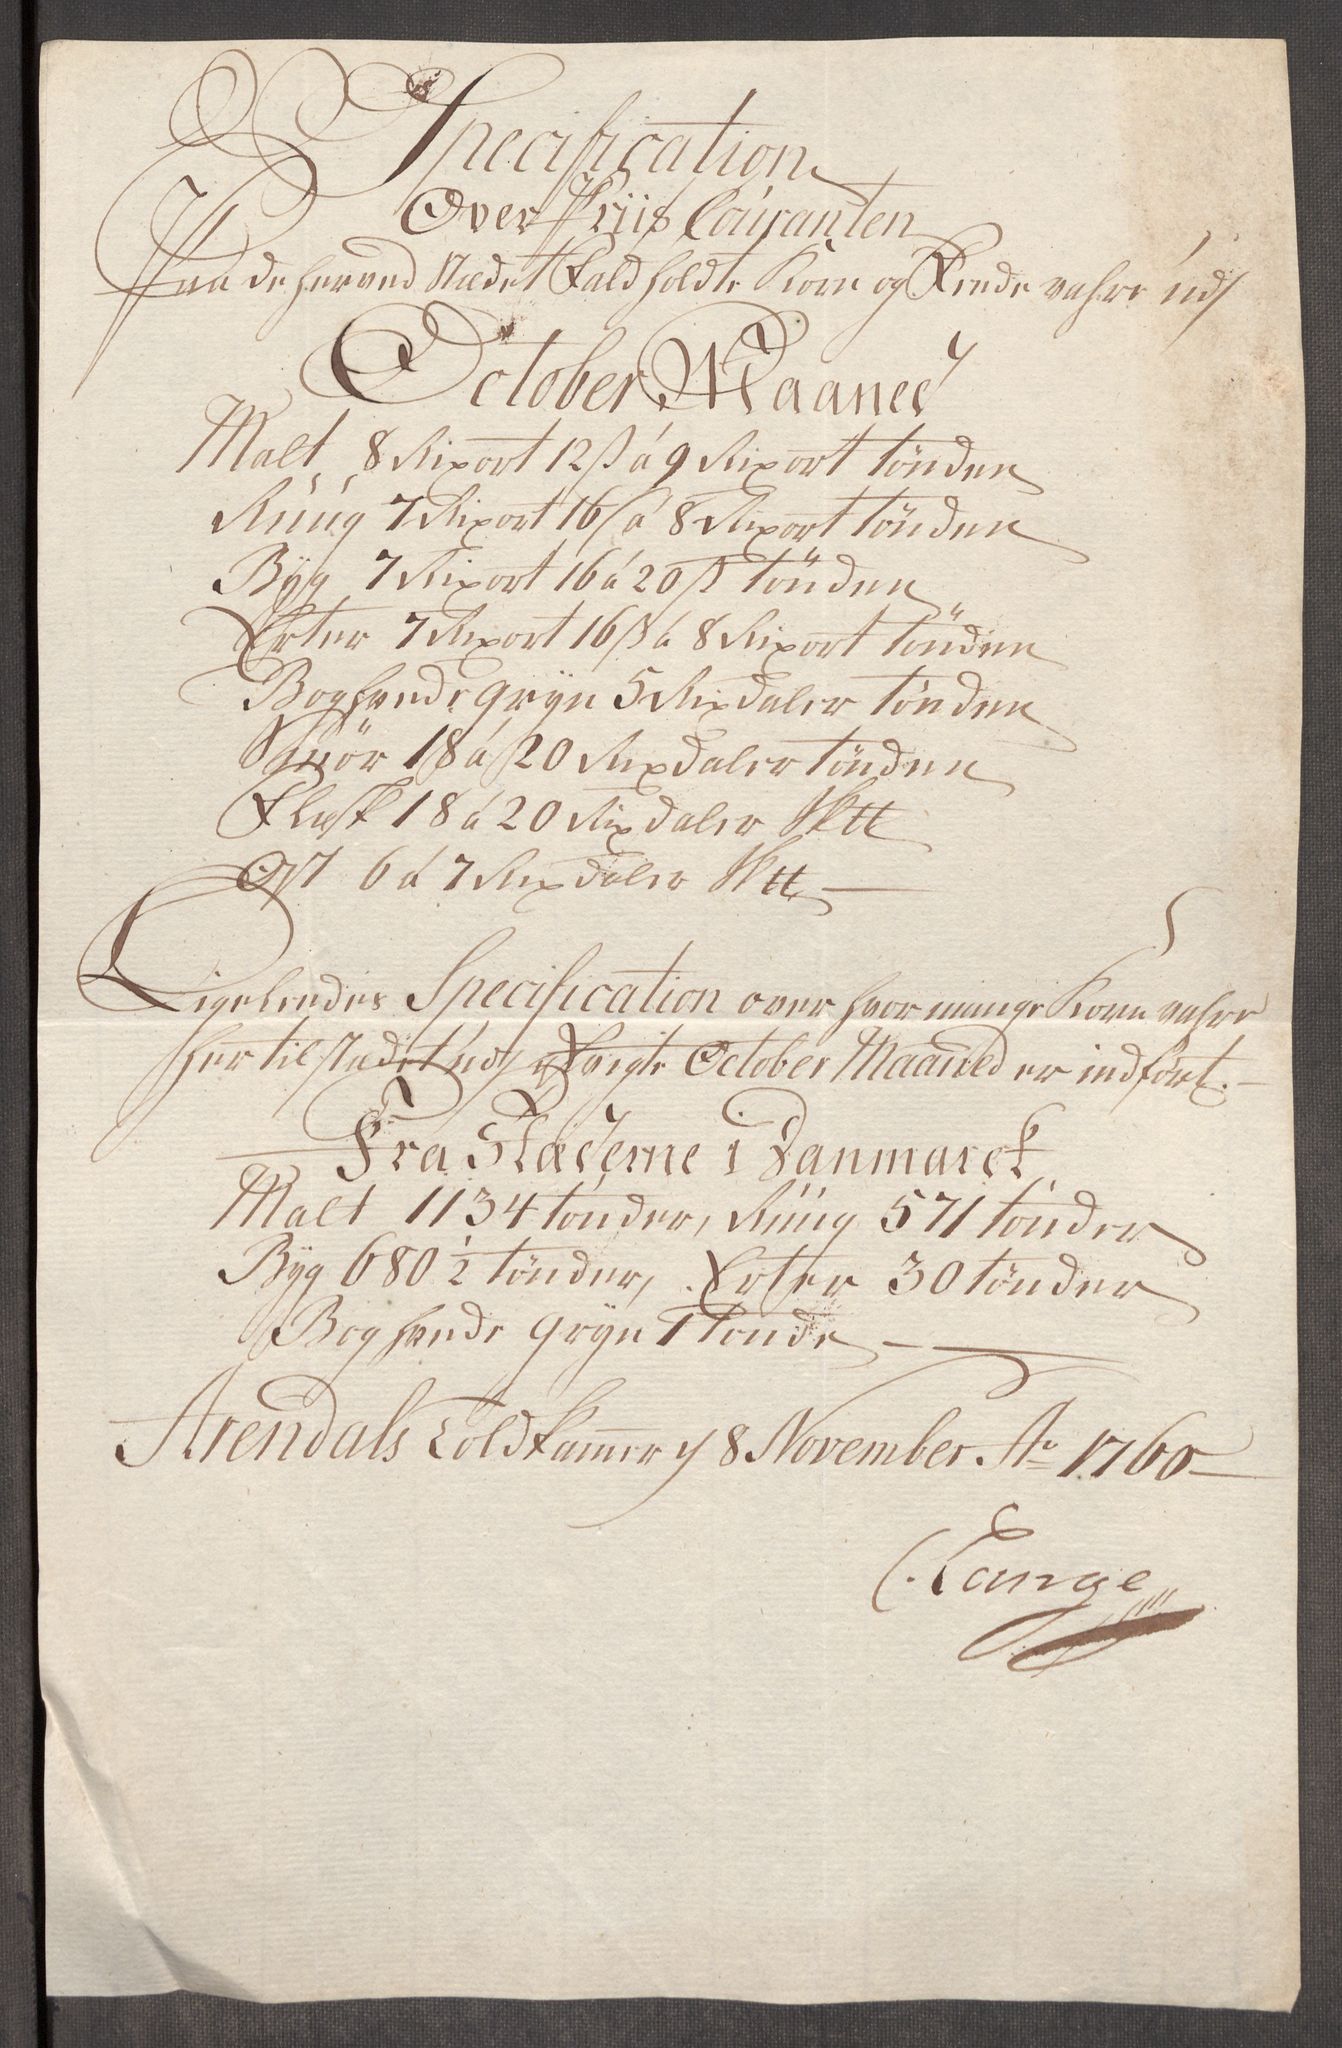 Specification
Over Priis Couranten
Paa de her ved Stædet Fald holdte Korn og Feede vahre udj
October Maaned
Malt 8 Rixort 12 ß á 9 Rixort tönden
Rúúg 7 Rixort 16 ß á 8 Rixort tönden
Byg 7 Rixort 16 á 20 ß tönden
Erter 7 Rixort 16 ß á 8 Rixort tönden
Boghvede gryn 5 Rixdaler tönden
Smör 18 á 20 Rixdaler tönden
Flesk 18 á 20 Rixdaler Sk℔
Ost 6 á 7 Rixdaler Sk℔
Ligeleedes Specification over hvor mange Korn vahre
her til stædet udj October Maaned er indfört.
Fra Stæderne i Danmarck
Malt 1134 tönder, Rúúg 571 tönder
Byg 680 1/2 tönder, Erter 30 tönder
Boghvede gryn 1 tönde
Arendals Toldkammer d 8 November Ao 1760
C. Lange